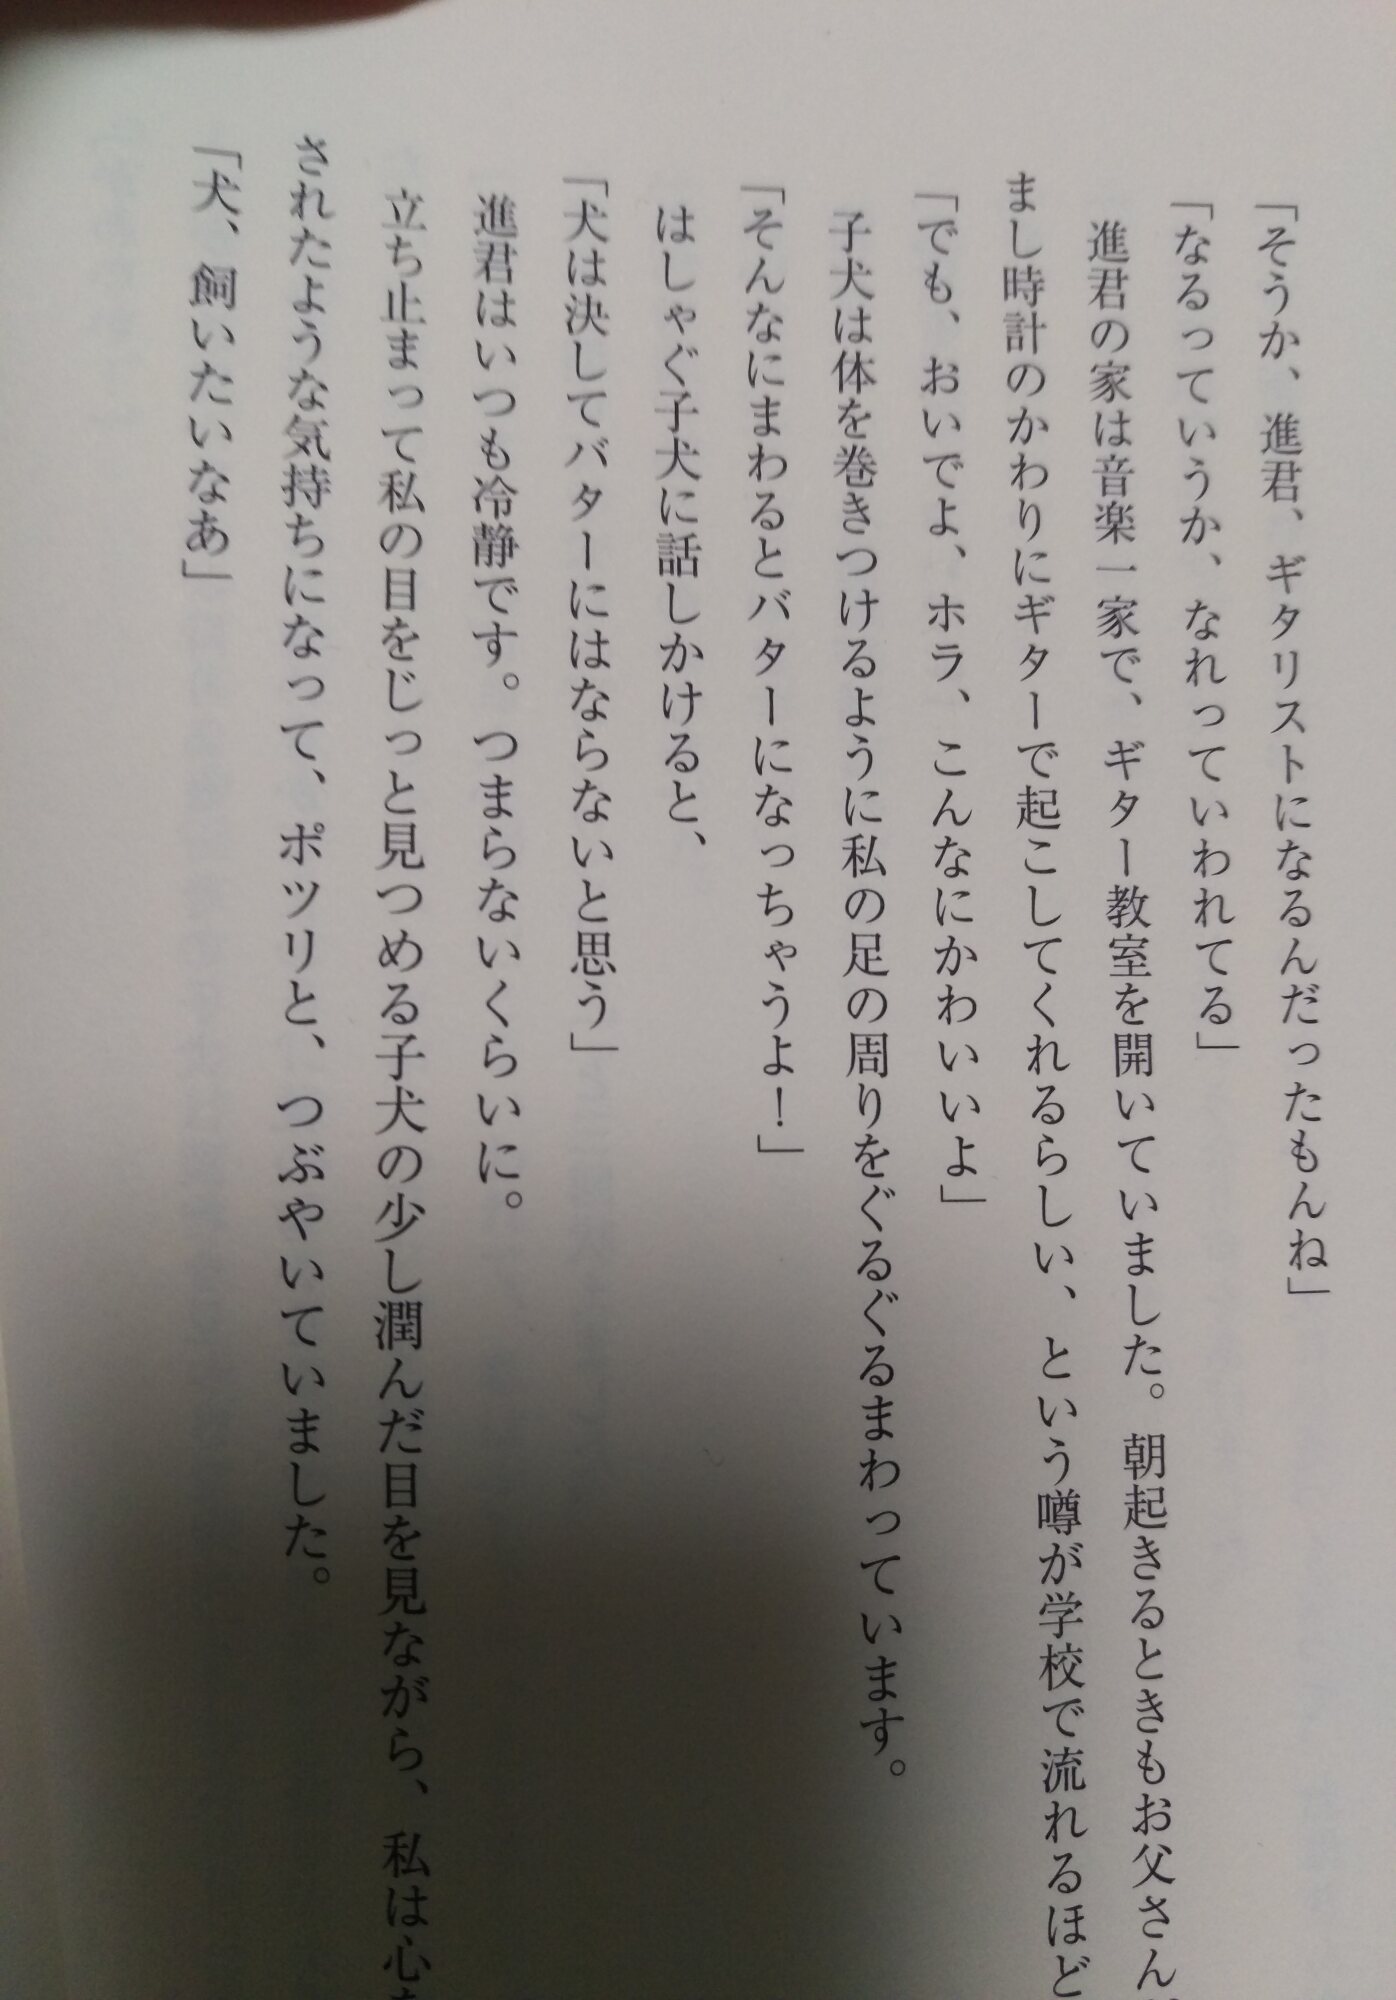 「そうか、進君、ギタリストになるんだったもんね」
「なるっていうか、なれっていわれてる」
進君の家は音楽一家で、ギター教室を開いていました。朝起きるときもお父さん
まし時計のかわりにギターで起こしてくれるらしい、という噂が学校で流れるほど
「でも、おいでよ、ホラ、こんなにかわいいよ」
子犬は体を巻きつけるように私の足の周りをぐるぐるまわっています。
「そんなにまわるとバターになっちゃうよ！」
はしゃぐ子犬に話しかけると、
「犬は決してバターにはならないと思う」
進君はいつも冷静です。つまらないくらいに。
立ち止まって私の目をじっと見つめる子犬の少し潤んだ目を見ながら、私は心
されたような気持ちになって、ポツリと、つぶやいていました。
「犬、飼いたいなあ」